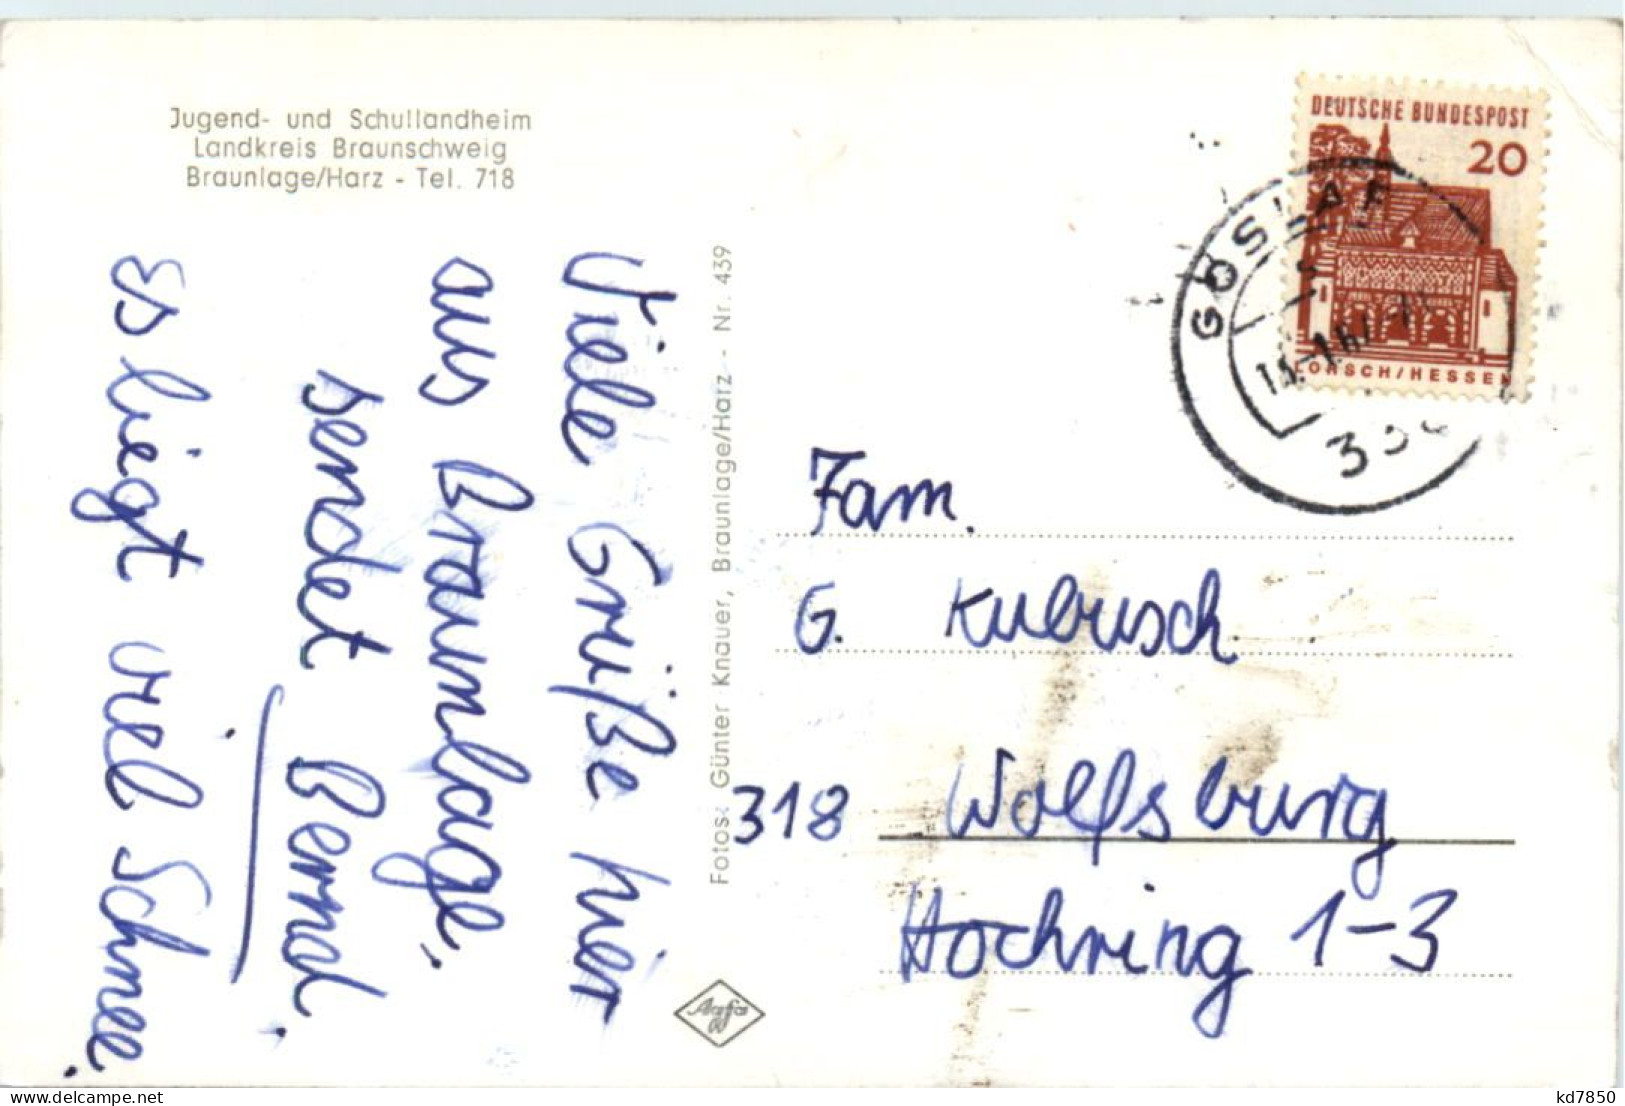 Jugend- und Schullandheim
Landkreis Braunschweig
Braunlage/Harz - Tel. 718
Viele Grüße hier
aus Braunlage,
sendet Bernd.
Es liegt viel Schnee.
Fotos: Günter Knauer, Braunlage/Harz - Nr. 439
Agfa
DEUTSCHE BUNDESPOST
20
LORSCH/HESSEN
GOSLAR
Fam.
G. Kubusch
318 Wolfsburg
Hochring 1-3
kd7850